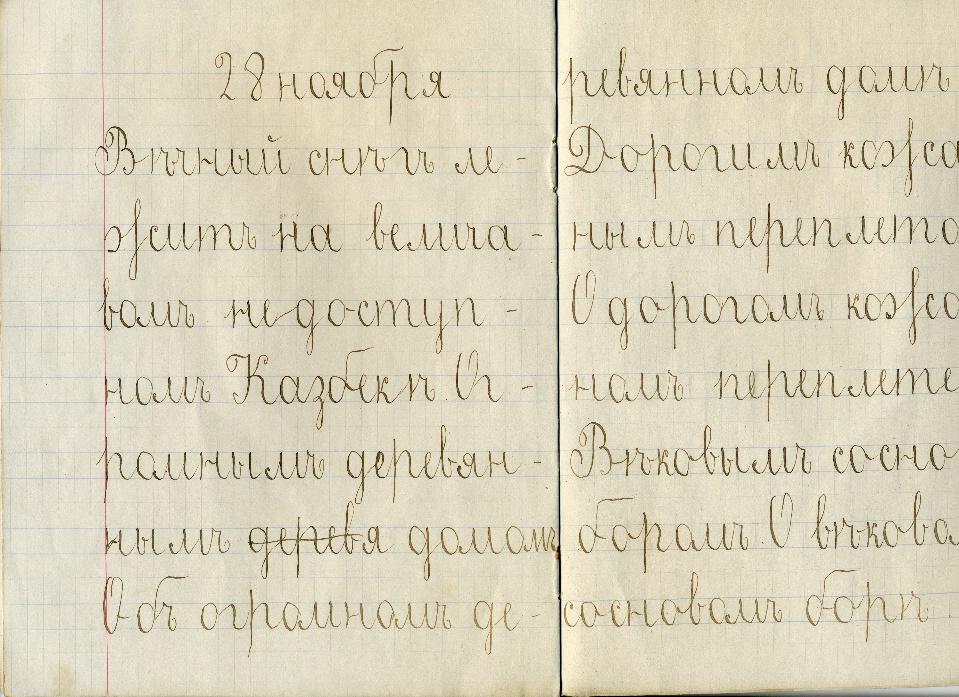 28 ноября
Вѣчный снѣгъ ле-
житъ на велича-
вомъ недоступ-
номъ Казбекѣ. Ог-
ромнымъ деревян-
нымъ деревя домомъ
Объ огромномъ де-
ревянномъ домѣ
Дорогимъ кожа
нымъ переплето
О дорогомъ кожа
номъ переплете
Вѣковымъ сосно
боромъ. О вѣково
сосновомъ борѣ